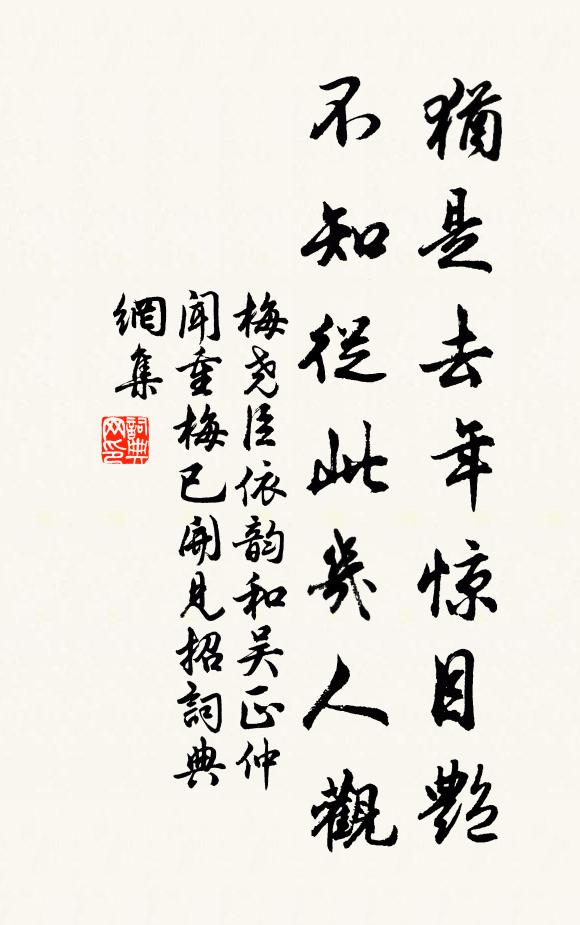 猶是去年惊目艷
不知從此幾人觀
梅尧臣依韵和吴正仲
聞重梅已開見招詞典
網集
詞典
网印